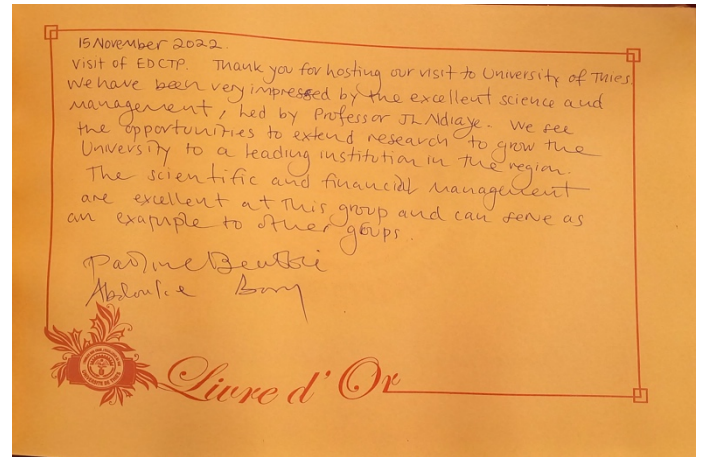 15 November 2022.
Visit of EDCTP. Thank you for hosting our visit to University of Thies.
We have been very impressed by the excellent science and
management, led by Professor JL Ndiaye. We see
the opportunities to extend research to grow the
University to a leading institution in the region.
The scientific and financial management
are excellent at this group and can serve as
an example to other groups.
Pauline Beattie
Abdoulie Barry
Livre d'Or